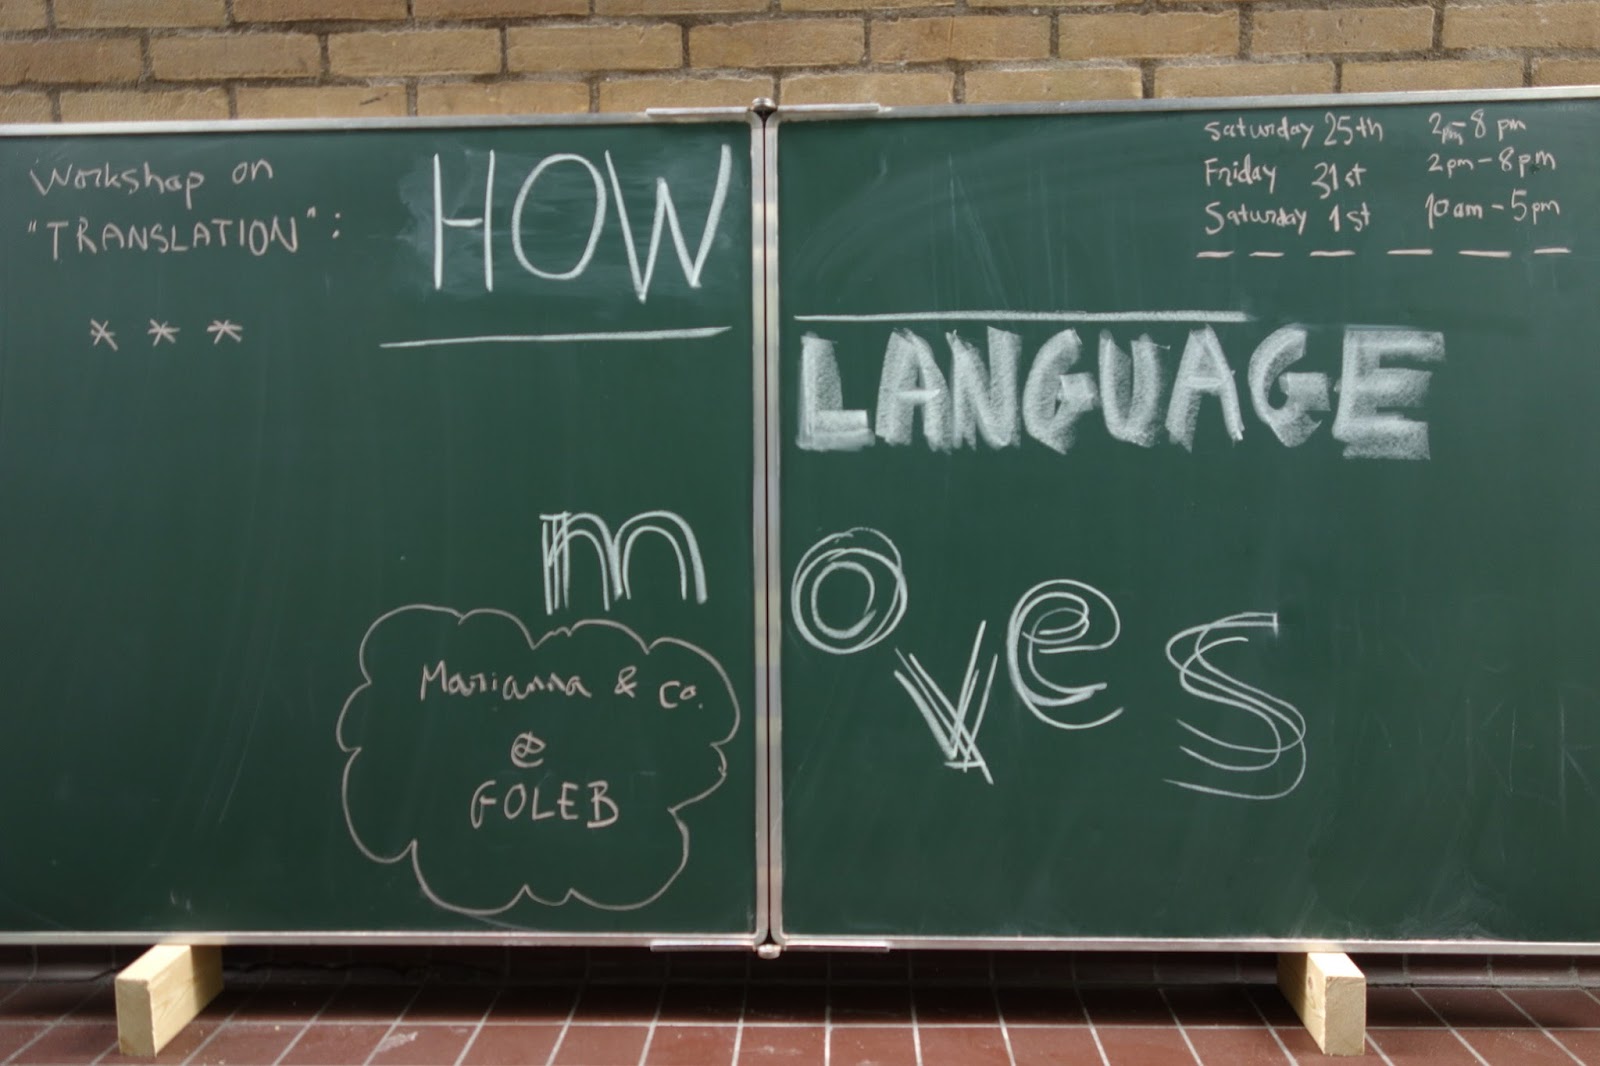 Workshop on
"TRANSLATION":
* * *
HOW
LANGUAGE
moves
Marianna & Co.
@
GOLEB
Saturday 25th 2pm-8 pm
Friday 31st 2pm-8pm
Saturday 1st 10am-5pm